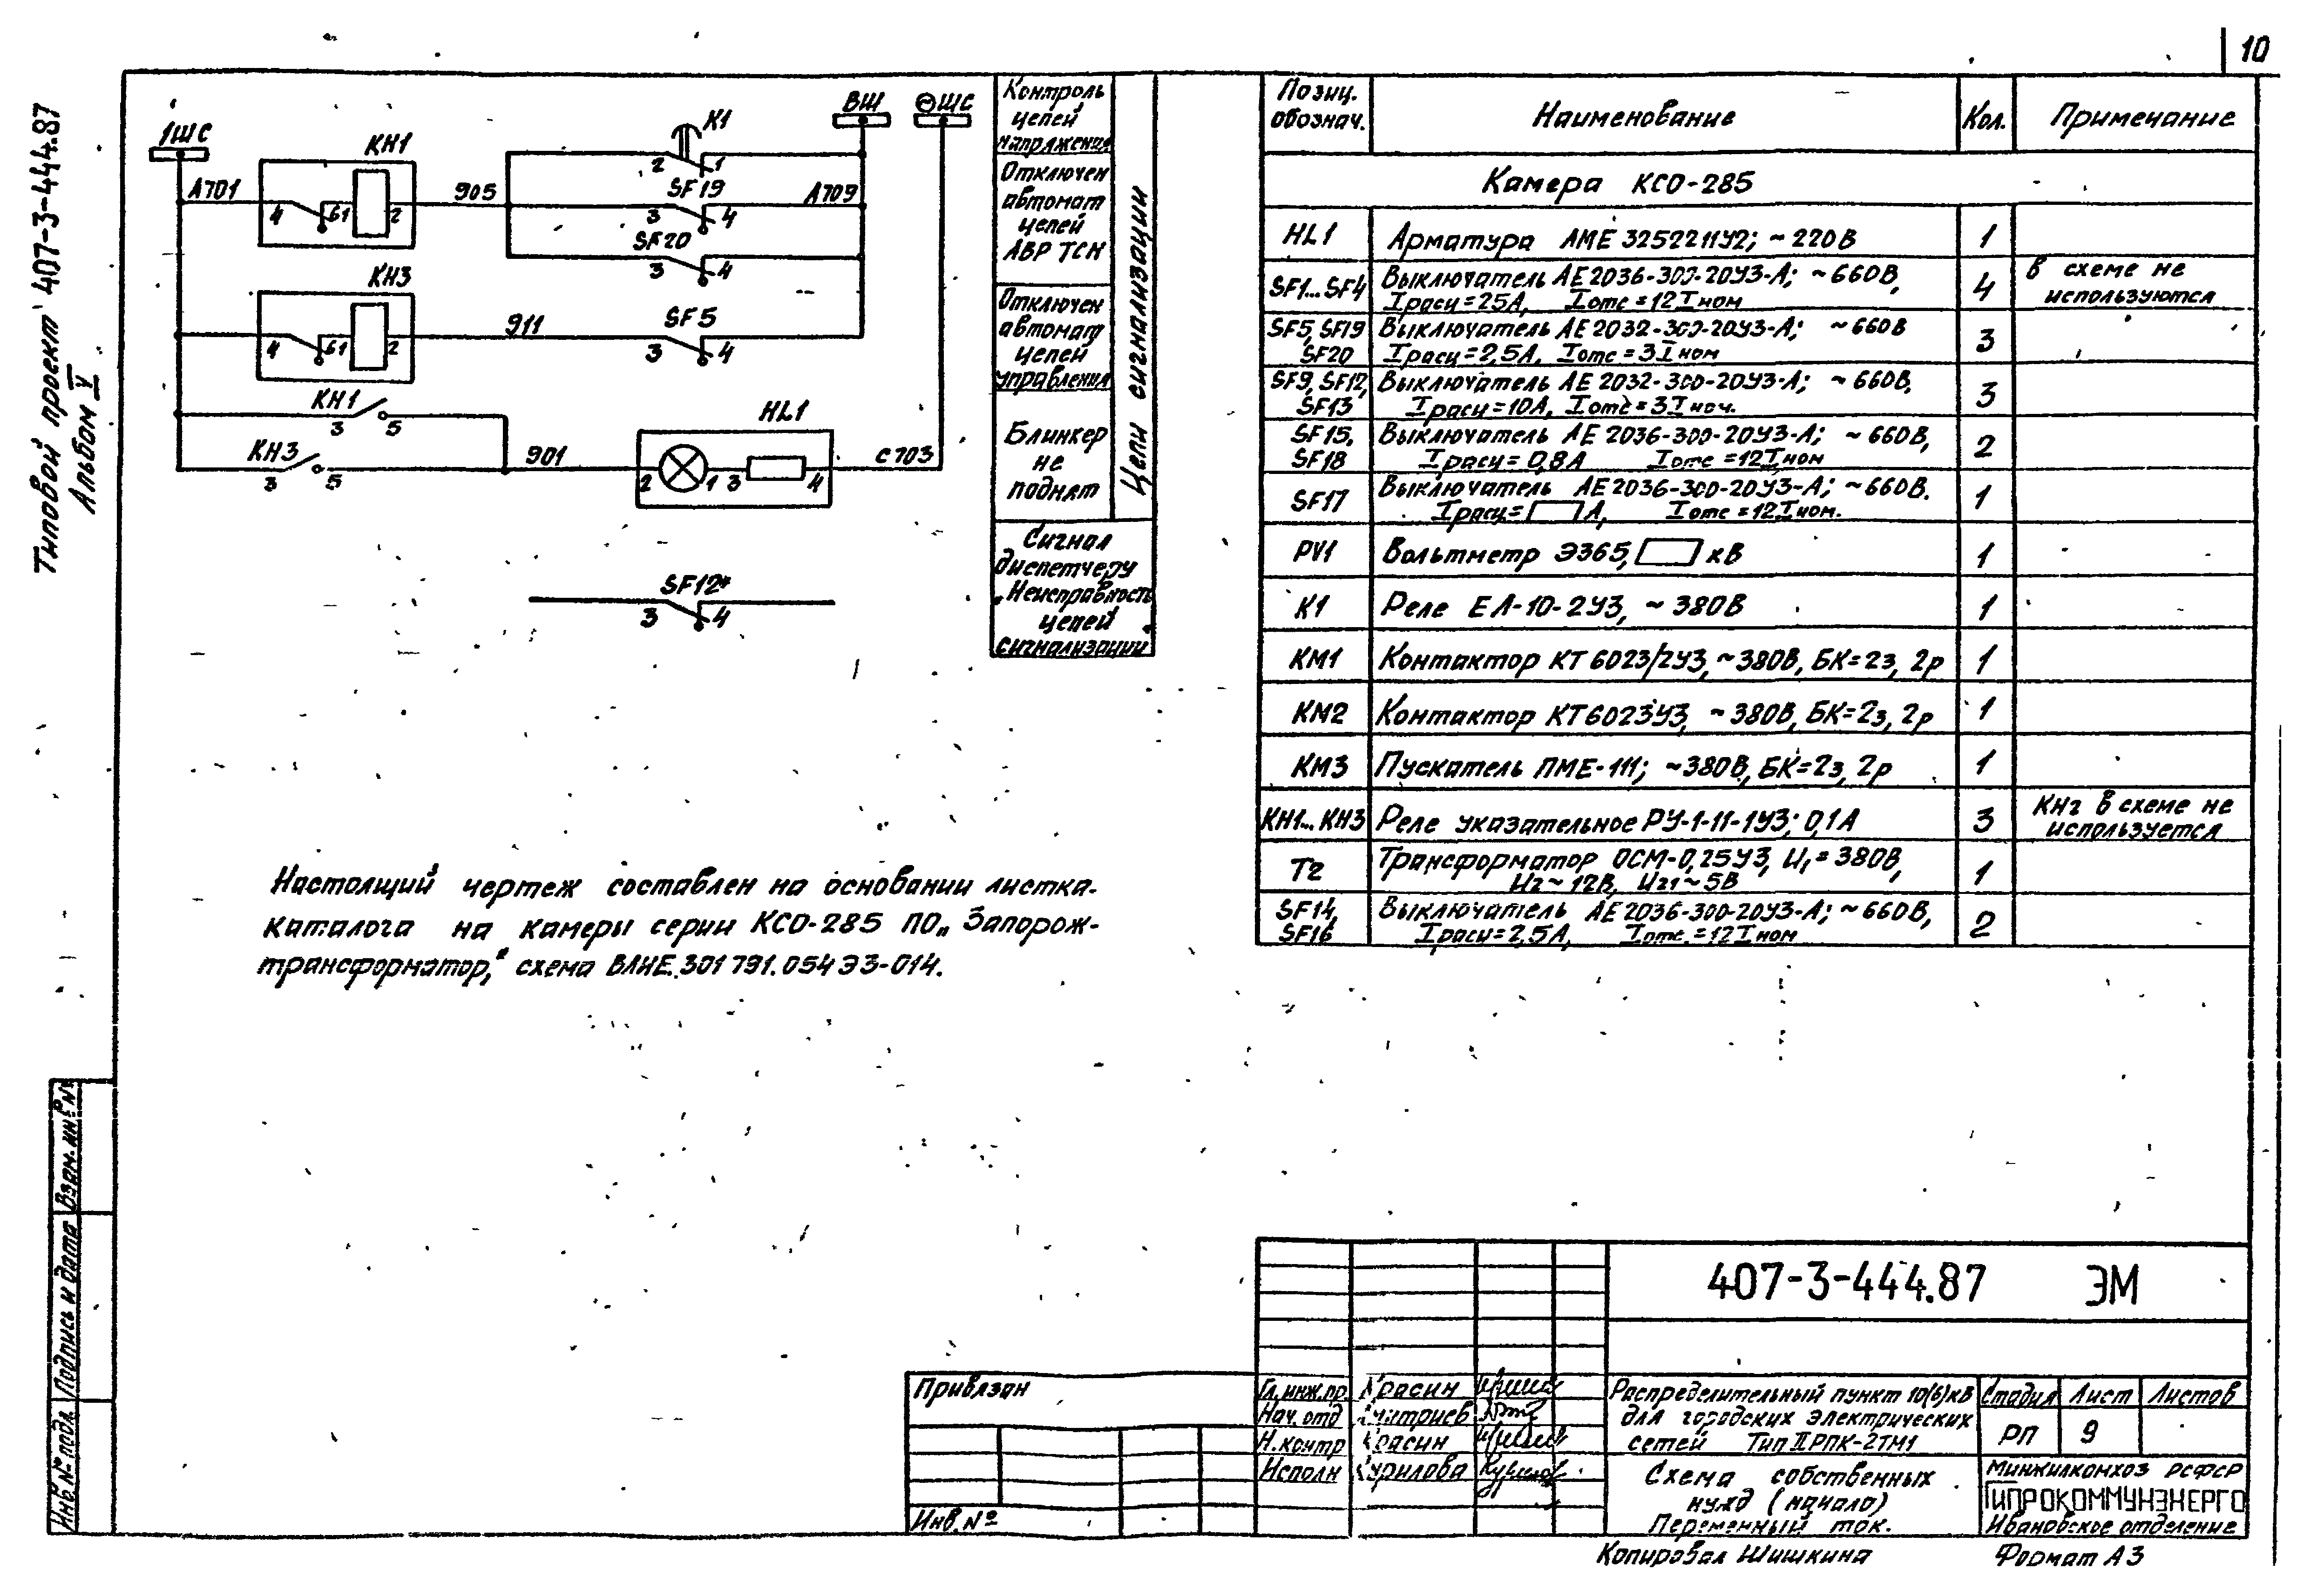 10
Типовой проект 407-3-444.87
Альбом V
1ШС
КН1
К1
ВШ
ШС
А701
4
61
2
905
2
1
SF19
3
4
А709
SF20
3
4
КН3
4
61
2
911
SF5
3
4
КН1
3
5
КН3
3
5
901
HL1
2
1
3
4
С703
SF12*
3
4
Контроль
цепей
напряжения
Отключен
автомат
цепей
АВР ТСН
Отключен
автомат
цепей
управления
Блинкер
не
поднят
Цепи сигнализации
Сигнал
диспетчеру
„Неисправность
цепей
сигнализации
Позиц.
обознач.
Наименование
Кол.
Примечание
Камера КСО-285
HL1 Арматура АМЕ 325221У2; ~220В 1
SF1...SF4 Выключатель АЕ2036-300-20У3-А; ~660В, 4 В схеме не
Iрасц=25А, Iотс=12Iном используются
SF5, SF19 Выключатель АЕ2032-300-20У3-А; ~660В 3
SF20 Iрасц=2,5А, Iотс=3Iном
SF9, SF12, Выключатель АЕ 2032-300-20У3-А; ~660В, 3
SF13 Iрасц=10А, Iотс=3Iном.
SF15, Выключатель АЕ 2036-300-20У3-А; ~660В, 2
SF18 Iрасц=0,8А Iотс=12Iном
SF17 Выключатель АЕ2036-300-20У3-А; ~660В. 1
Iрасц= А, Iотс=12Iном.
PV1 Вольтметр Э365, кВ 1
К1 Реле ЕЛ-10-2У3, ~380В 1
КМ1 Контактор КТ6023/2У3, ~380В, БК=2з, 2р 1
КМ2 Контактор КТ6023У3, ~380В, БК=2з, 2р 1
КМ3 Пускатель ПМЕ-111; ~380В, БК=2з, 2р 1
КН1...КН3 Реле указательное РУ-1-11-1У3; 0,1А 3 КН2 в схеме не
используется
Т2 Трансформатор ОСМ-0,25У3, U1=380В, 1
U2~12В, U21~5В
SF14, Выключатель АЕ2036-300-20У3-А; ~660В, 2
SF16 Iрасц=2,5А, Iотс=12Iном
Настоящий чертеж составлен на основании листка-
каталога на камеры серии КСО-285 ПО „Запорож-
трансформатор,“ схема ВЛИЕ.301791.054 Э3-014.
Взам.инв.№
Подпись и дата
Инв.№ подл.
407-3-444.87 ЭМ
Привязан
Инв.№
Гл.инж.пр. Красин
Нач.отд Дмитриев
Н.контр Красин
Исполн Курилова
Распределительный пункт 10(6)кВ
для городских электрических
сетей Тип II РПК-2ТМ1
Стадия Лист Листов
РП 9
Схема собственных
нужд (начало)
Переменный ток.
Минжилкомхоз РСФСР
ГИПРОКОММУНЭНЕРГО
Ивановское отделение
Копировал Шишкина
Формат А3